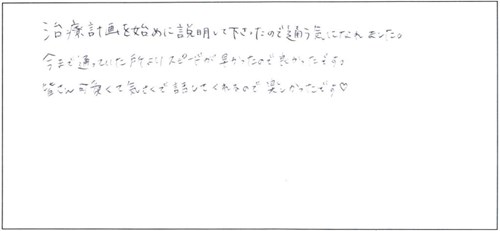 治療計画を始めに説明して下さったので通う気になれました。
今まで通っていた所よりスピードが早かったので良かったです。
皆さん可愛くて気さくで話してくれるので楽しかったです♡